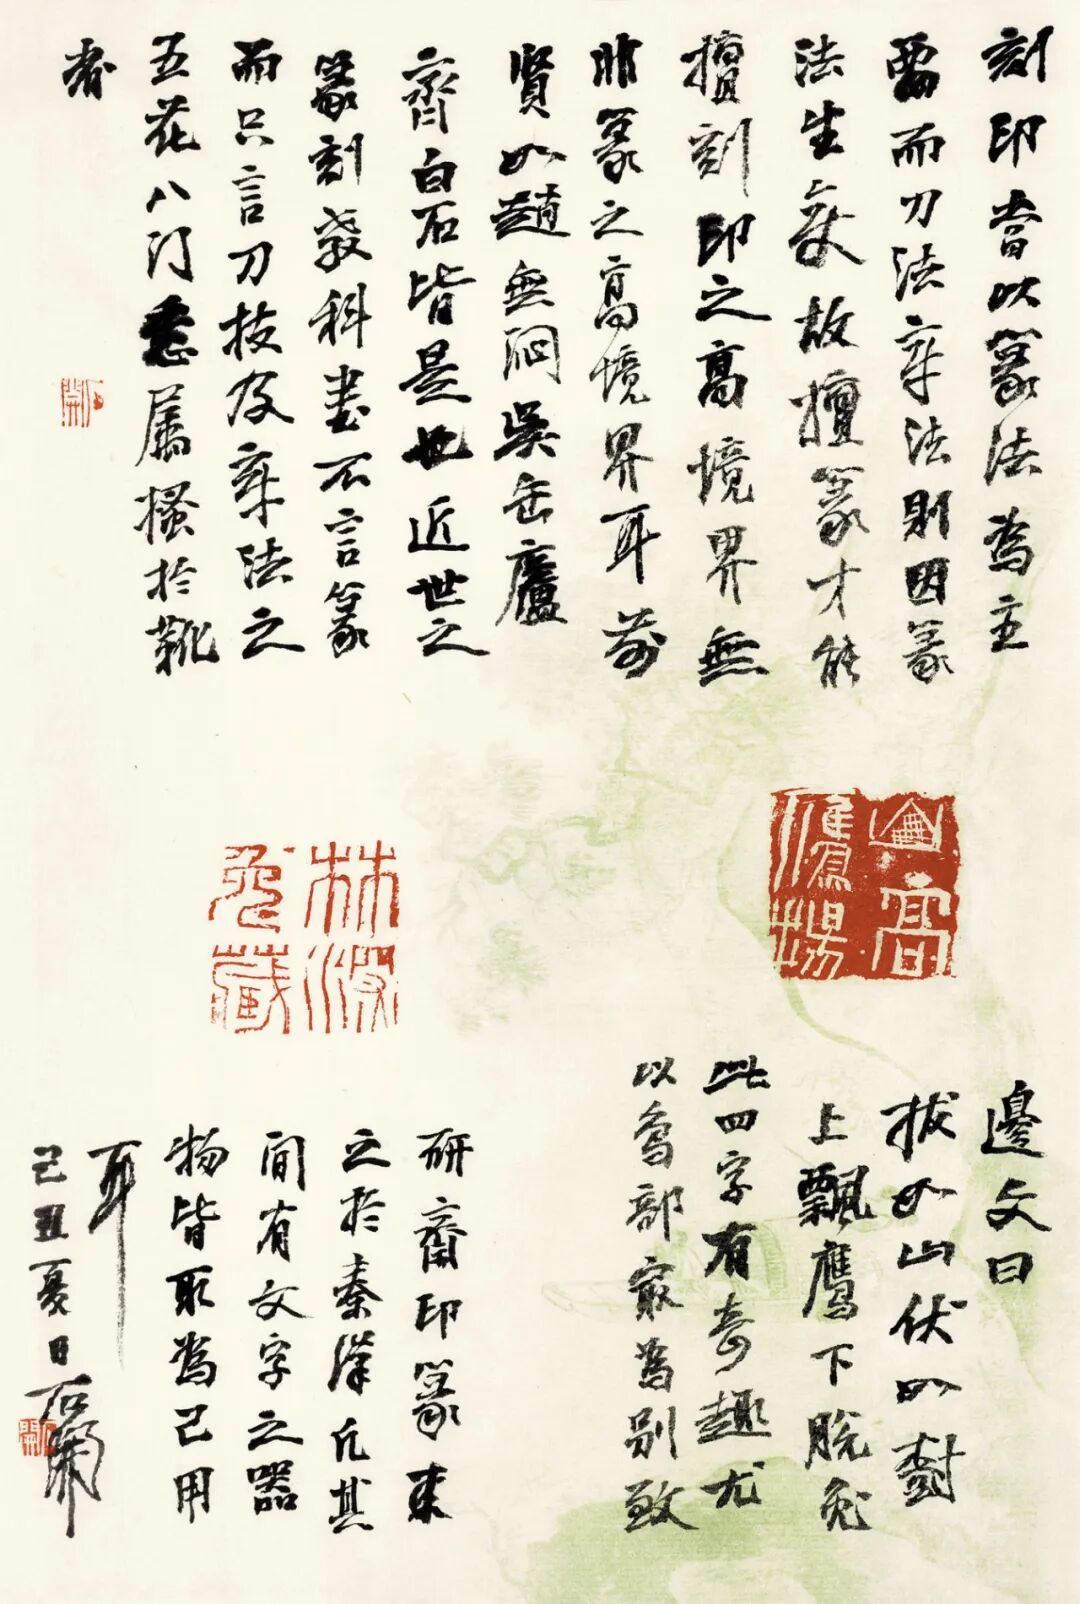 刻印當以篆法為主
要而刀法章法則因篆
法生變故擅篆才能
擅刻印之高境界無
非篆之高境界耳前
賢如趙無悶吳缶廬
齊白石皆是也近世之
篆刻教科書不言篆
而只言刀技及章法之
五花八门悉屬搔於靴
者
石開
山高
鷹揚
邊文曰
拔如山伏如樹
上飄鷹下脫兔
此四字有奇趣尤
以鳥部最為别致
林深
兔藏
研齋印篆来
之於秦漢凡其
間有文字之器
物皆取為己用
耳
己丑夏日石開
石開